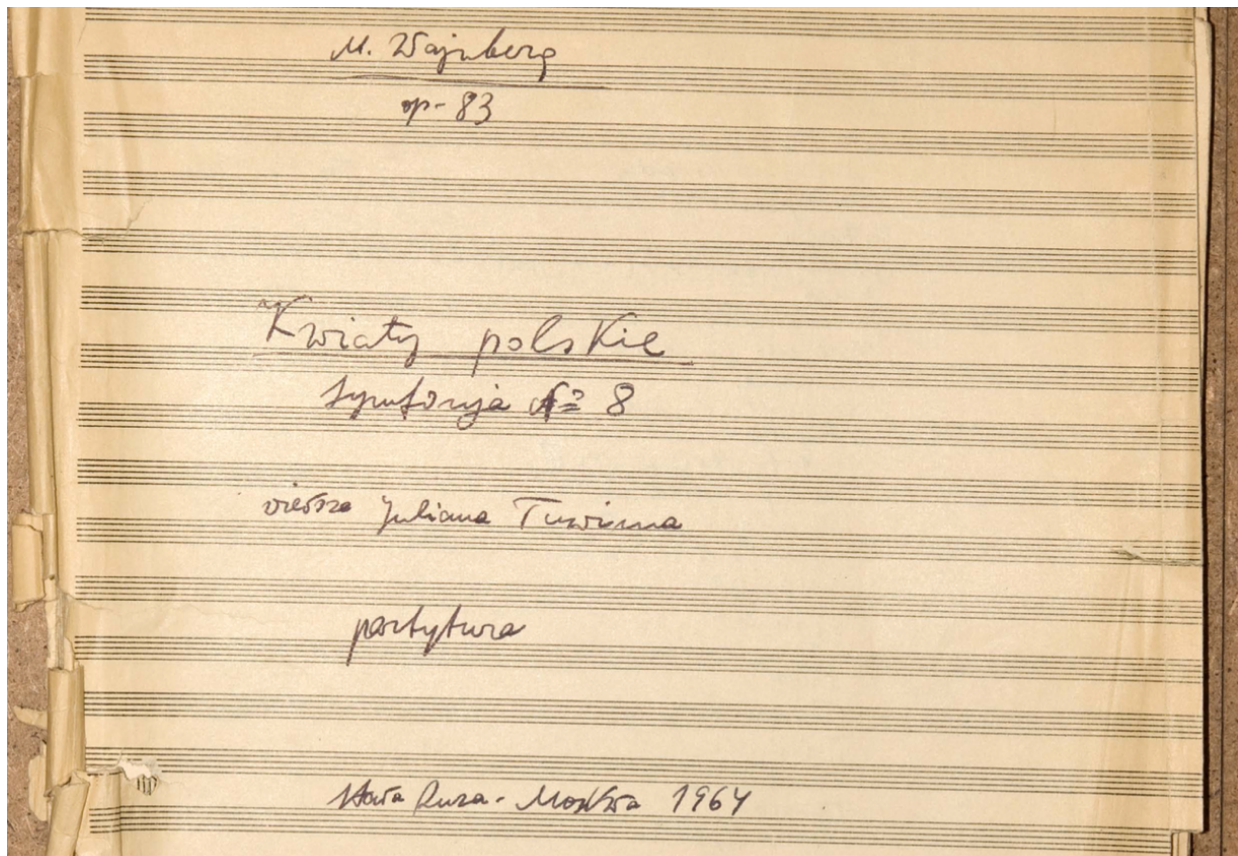 M. Wajnberg
op. 83
"Kwiaty polskie
Symfonja № 8
wiersze Juliana Tuwima
partytura
Stara Ruza - Moskwa 1964